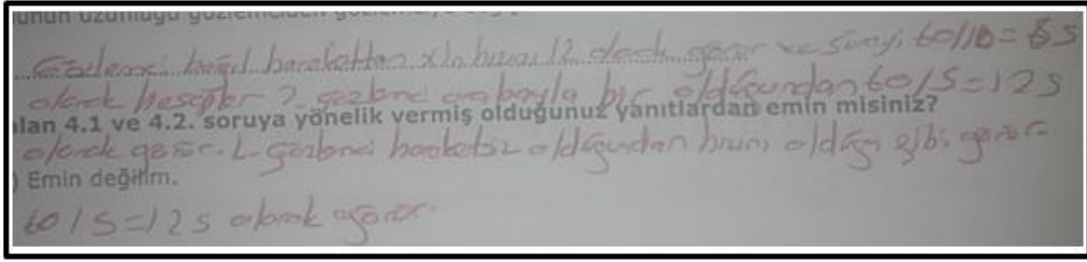 unun uzunluğu gözlemciden gözlemciye
Gözlemci bağıl hareketten x'in hızını 12 olarak görür ve süreyi 60/10=6s
olarak hesaplar 2. gözlemci arabayla bir olduğundan 60/5=12s
alan 4.1 ve 4.2. soruya yönelik vermiş olduğunuz yanıtlardan emin misiniz?
olarak görür. 1. gözlemci hareketsiz olduğundan hızını olduğu gibi görür
) Emin değilim.
60/5=12s olarak görür.